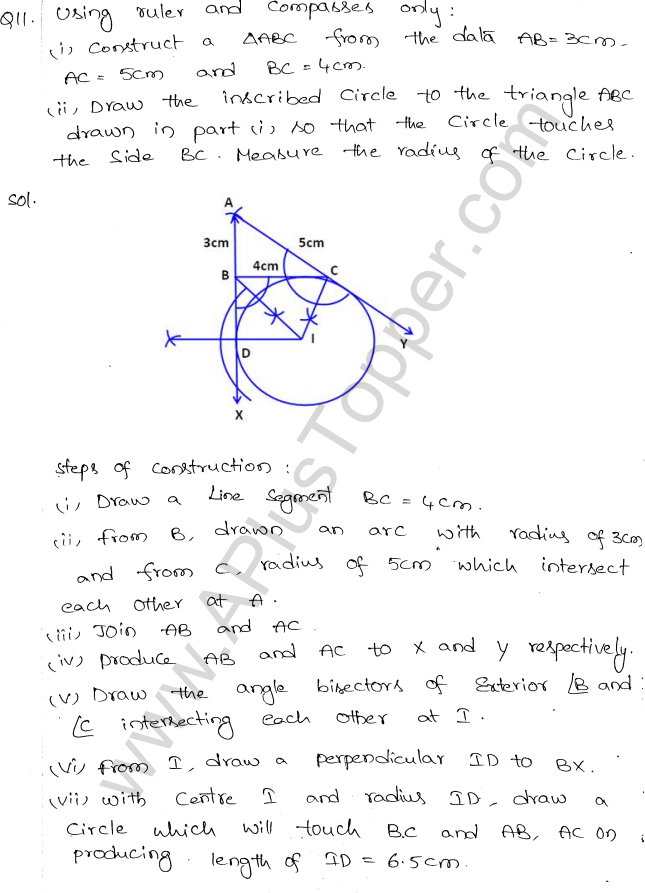 Q11. Using ruler and Compasses only :
(i) Construct a ΔABC from the data AB = 3cm,
AC = 5cm and BC = 4cm.
(ii) Draw the inscribed Circle to the triangle ABC
drawn in part (i) so that the Circle touches
the Side BC. Measure the radius of the Circle.
Sol.
A
3cm
5cm
B
4cm
C
D
I
Y
X
www.APlusTopper.com
Steps of construction :
(i) Draw a Line Segment BC = 4cm.
(ii) from B, drawn an arc with radius of 3cm
and from C, radius of 5cm which intersect
each other at A.
(iii) Join AB and AC.
(iv) produce AB and AC to X and Y respectively.
(v) Draw the angle bisectors of Exterior ∠B and
∠C intersecting each other at I.
(vi) from I, draw a perpendicular ID to BX.
(vii) with Centre I and radius ID, draw a
Circle which will touch BC and AB, AC on
producing. length of ID = 6.5cm.